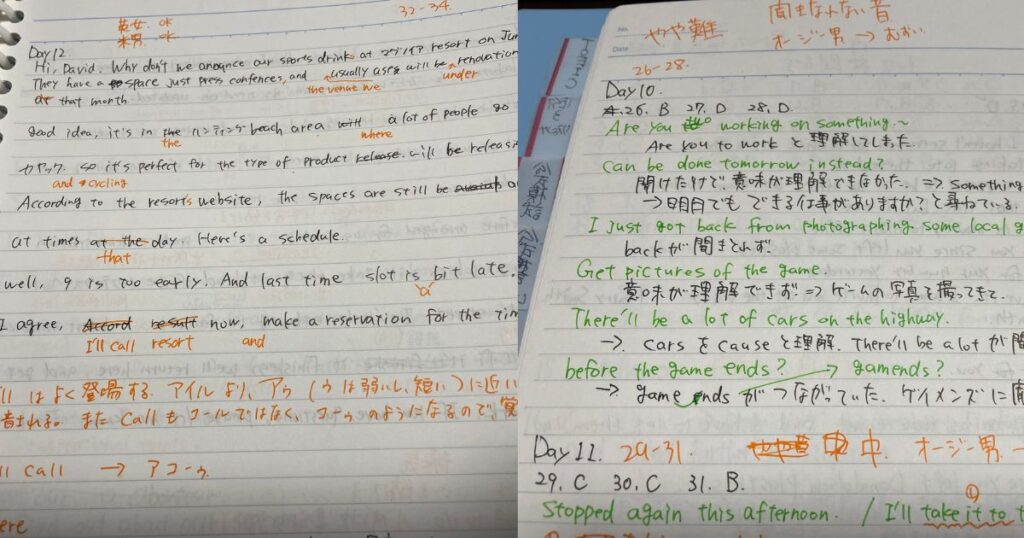 英女 OK
米男 OK
32-34.
Day 12
Hi, David. Why don't we anounce our sports drink at マグノリア resort on Jun
They have a space just press confences, and usually uses will be renovation
the venue we under
at that month
good idea, it's in the ハンティング beach area with a lot of people go
the where
カヤック so it's perfect for the type of product release. will be releasi
and cycling
According to the resorts website, the spaces are still be
at times at the day. Here's a schedule.
that
well, 9 is too early. And last time slot is bit late.
a
I agree, Accord result now, make a reservation for the tim
I'll call resort and
'll はよく登場する。アイルより、アゥ(ウは弱いし、短い)に近い
音される。また Call もコールではなく、コーゥのようになるので、覚
ll call → アコーゥ
ere
やや難
聞きなれない音
オージー男 →
Date
26-28.
Day 10.
26. B 27. D 28. D.
Are you working on something.~
Are you to work と理解してしました
can be done tomorrow instead?
聞けたけで、意味が理解できなかった. => something
→明日でもできる仕事がありますか?と尋ねている.
I just got back from photographing some local g
backが聞きとれず.
Get pictures of the game.
意味が理解できず => ゲームの写真を撮ってきて.
There'll be a lot of cars on the highway.
→. cars を cause と理解. There'll be a lot が聞
before the game ends? → gamends?
→ game ends がつながっていた. ゲイメンズに聞
Day 11. 29-31. 中. オージー男.
29. C 30. C 31. B.
Stopped again this afternoon. / I'll take it to t
①